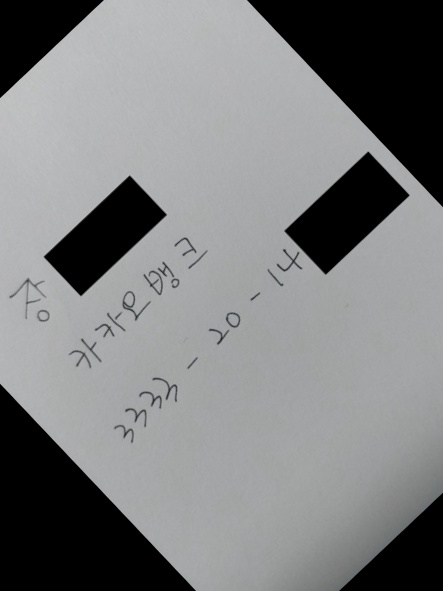 증
카카오뱅크
3333 - 20 - 14